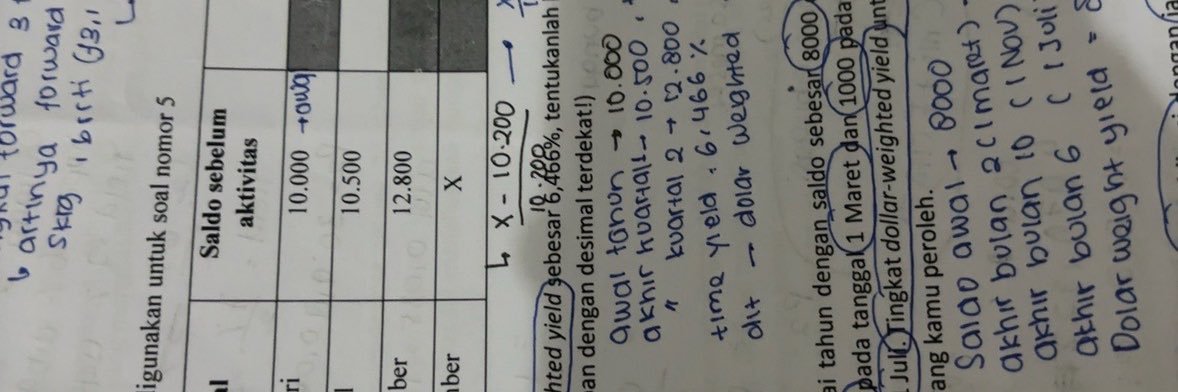 artinya forward
skrg
digunakan untuk soal nomor 5
Saldo sebelum
aktivitas
ri 10.000 → awal
10.500
ber 12.800
ber X
↳ X - 10.200
10.200
hted yield sebesar 6,466%, tentukanlah
an dengan desimal terdekat!)
awal tahun → 10.000
akhir kuartal 1 → 10.500
" kuartal 2 → 12.800
time yield = 6,466 %
dit → dolar weighted
ai tahun dengan saldo sebesar 8000
pada tanggal 1 Maret dan 1000 pada
Juli. Tingkat dollar-weighted yield unt
ang kamu peroleh.
Saldo awal → 8000
akhir bulan 2 (1 maret)
akhir bulan 10 (1 Nov)
akhir bulan 6 (1 Juli
Dolar weight yield =